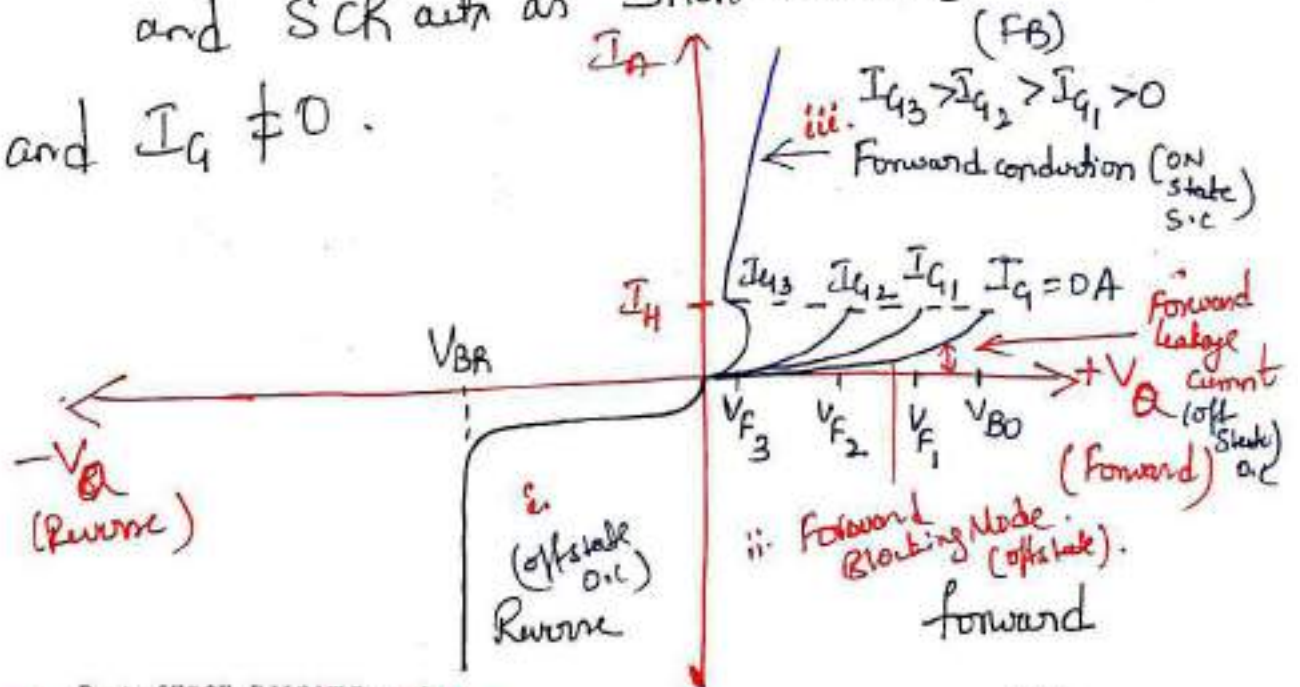 and SCR acts as
(FB)
I_A
I_G3 > I_G2 > I_G1 > 0
and I_G ≠ 0 .
iii.
Forward conduction (ON state S.C)
I_G3 I_G2 I_G1 I_G = 0 A
I_H
Forward leakage current (off state) O.C
V_BR
+V_a
V_F3 V_F2 V_F1 V_BO
(Forward)
-V_a
(Reverse)
i.
(offstate O.C)
Reverse
ii. Forward Blocking Mode. (offstate).
forward